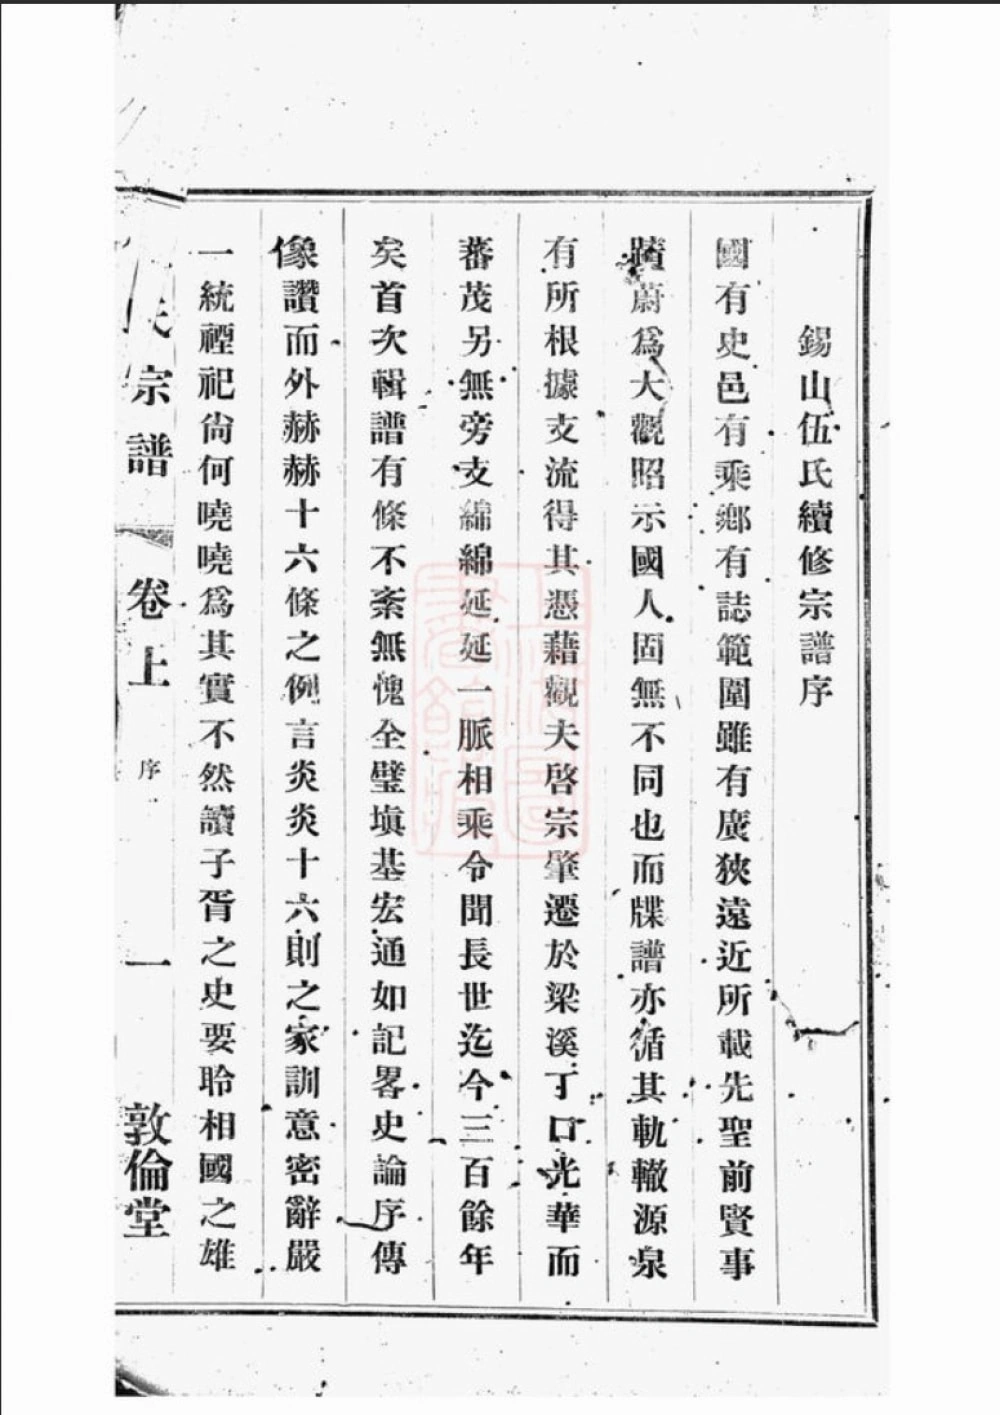 錫山伍氏續修宗譜序
國有史邑有乘鄕有誌範圍雖有廣狹遠近所載先聖前賢事
蹟蔚爲大觀昭示國人固無不同也而牒譜亦循其軌轍源泉
有所根據支流得其憑藉觀夫啓宗肇遷於梁溪丁口光華而
蕃茂另無旁支綿綿延延一脈相乘令聞長世迄今三百餘年
矣首次輯譜有條不紊無愧全璧塡基宏通如記畧史論序傳
像讚而外赫赫十六條之例言炎炎十六則之家訓意密辭嚴
一統禋祀尙何曉曉爲其實不然讀子胥之史要聆相國之雄
氏宗譜
卷上
序
一
敦倫堂